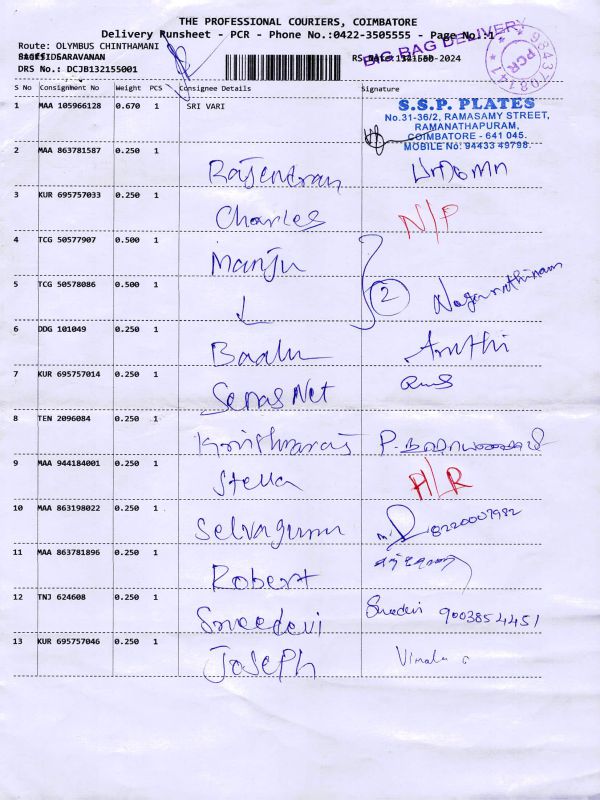 THE PROFESSIONAL COURIERS, COIMBATORE
Delivery Runsheet - PCR - Phone No.:0422-3505555 - Page No.:1
BIG BAG DELIVERY
PCR
Route: OLYMBUS CHINTHAMANI
SARAVANAN
DRS No.: DCJB132155001
S No Consignment No Weight PCS Consignee Details Signature
1 MAA 105966128 0.670 1 SRI VARI
S.S.P. PLATES
No.31-36/2, RAMASAMY STREET,
RAMANATHAPURAM,
COIMBATORE - 641 045.
MOBILE No: 94433 49798.
2 MAA 863781587 0.250 1 Rajendran
3 KUR 695757033 0.250 1 Charles N/P
4 TCG 50577907 0.500 1 Manju
5 TCG 50578086 0.500 1 ↓ 2 Nagarathinam
6 DDG 101049 0.250 1 Baalu
7 KUR 695757014 0.250 1 Senas Net
8 TEN 2096084 0.250 1
9 MAA 944184001 0.250 1 Stella
10 MAA 863198022 0.250 1 Selvagumu 8220007982
11 MAA 863781896 0.250 1 Robert
12 TNJ 624608 0.250 1 Sreedevi Sreedevi 9003854451
13 KUR 695757046 0.250 1 Joseph Vimala